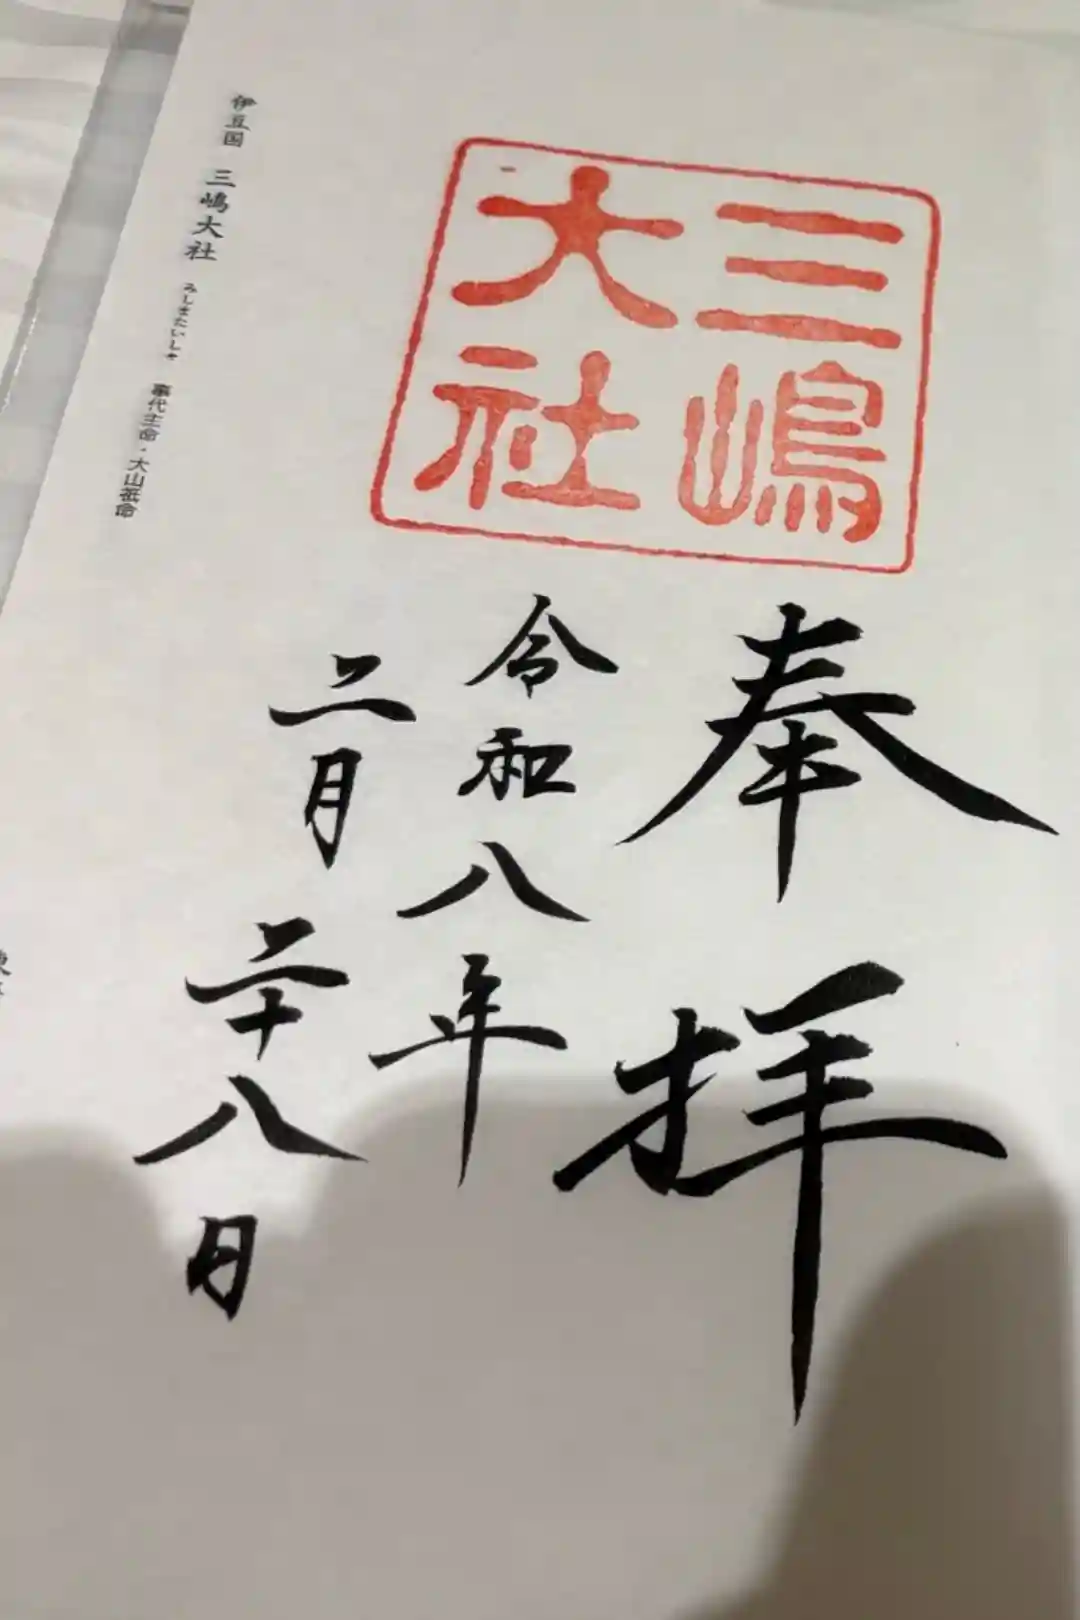 三嶋
大社
奉拝
令和八年
二月二十八日
伊豆国 三嶋大社 みしまたいしゃ 事代主命・大山祇命